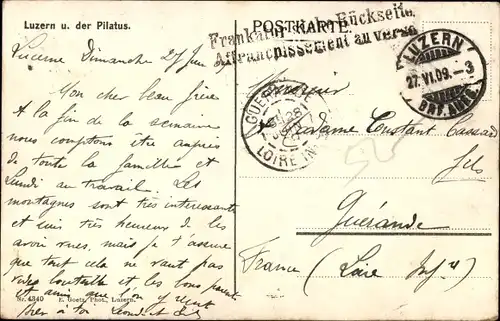 Luzern u. der Pilatus.
POSTKARTE.
Frankatur Rückseite.
Affranchissement au verso
LUZERN
27.VI.09.-3
BRF. AUFG.
GUERANDE
28
LOIRE INF
Lucerne Dimanche 27 Juin
Mon cher beau frère
A la fin de la semaine
nous comptons être auprès
de toute la famille et
Lundi au travail. Les
montagnes sont très intéressantes
et suis très heureux de les
avoir vues, mais je t'assure
que tout cela ne vaut pas
bouteille et les bons
et ainsi que
à toi
Monsieur
Madame Custant Cassard
fils
Guérande
France (Loire Infre)
Nr. 4340 E. Goetz, Phot., Luzern.